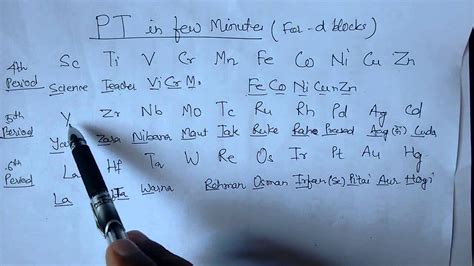 PT in few Minutes (For -d blocks)
4th Period Sc Ti V Cr Mn Fe Co Ni Cu Zn
Science Teacher Vi Cr M. Fe Co Ni Cun Zn
5th Period Y Zr Nb Mo Tc Ru Rh Pd Ag Cd
Zara Nibana Maut Tak Ruke Ag
6th Period La Hf Ta W Re Os Ir Pt Au Hg
La Warna Rehman Osman Irfan (se) Pitai Aur